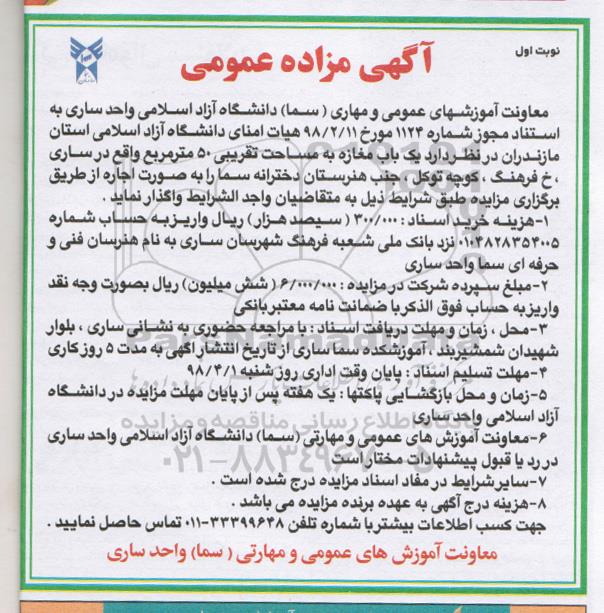 نوبت اول
آگهی مزاده عمومی
معاونت آموزشهای عمومی و مهاری (سما) دانشگاه آزاد اسلامی واحد ساری به
استناد مجوز شماره ۱۱۲۴ مورخ ۹۸/۲/۱۱ هیات امنای دانشگاه آزاد اسلامی استان
مازندران در نظر دارد یک باب مغازه به مساحت تقریبی ۵۰ مترمربع واقع در ساری
، خ فرهنگ ، کوچه توکل ، جنب هنرستان دخترانه سما را به صورت اجاره از طریق
برگزاری مزایده طبق شرایط ذیل به متقاضیان واجد الشرایط واگذار نماید .
۱-هزینه خرید اسناد : ۳۰۰/۰۰۰ ( سیصد هزار) ریال واریز به حساب شماره
۰۱۰۴۸۲۸۳۵۴۰۰۵ نزد بانک ملی شعبه فرهنگ شهرسان ساری به نام هنرسان فنی و
حرفه ای سما واحد ساری
۲-مبلغ سپرده شرکت در مزایده : ۶/۰۰۰/۰۰۰ ( شش میلیون) ریال بصورت وجه نقد
واریز به حساب فوق الذکر با ضمانت نامه معتبر بانکی
۳-محل ، زمان و مهلت دریافت اسناد : با مراجعه حضوری به نشانی ساری ، بلوار
شهیدان شمشیربند ، آموزشکده سما ساری از تاریخ انتشار آگهی به مدت ۵ روز کاری
۴-مهلت تسلیم اسناد : پایان وقت اداری روز شنبه ۹۸/۴/۱
۵-زمان و محل بازگشایی پاکتها : یک هفته پس از پایان مهلت مزایده در دانشگاه
آزاد اسلامی واحد ساری
۶-معاونت آموزش های عمومی و مهارتی (سما) دانشگاه آزاد اسلامی واحد ساری
در رد یا قبول پیشنهادات مختار است
۷-سایر شرایط در مفاد اسناد مزایده درج شده است .
۸-هزینه درج آگهی به عهده برنده مزایده می باشد .
جهت کسب اطلاعات بیشتر با شماره تلفن ۳۳۳۹۹۶۴۸-۰۱۱ تماس حاصل نمایید .
معاونت آموزش های عمومی و مهارتی ( سما) واحد ساری
پایگاه اطلاع رسانی مناقصه و مزایده
۰۲۱-۸۸۳۴۹۶۷۰-۵